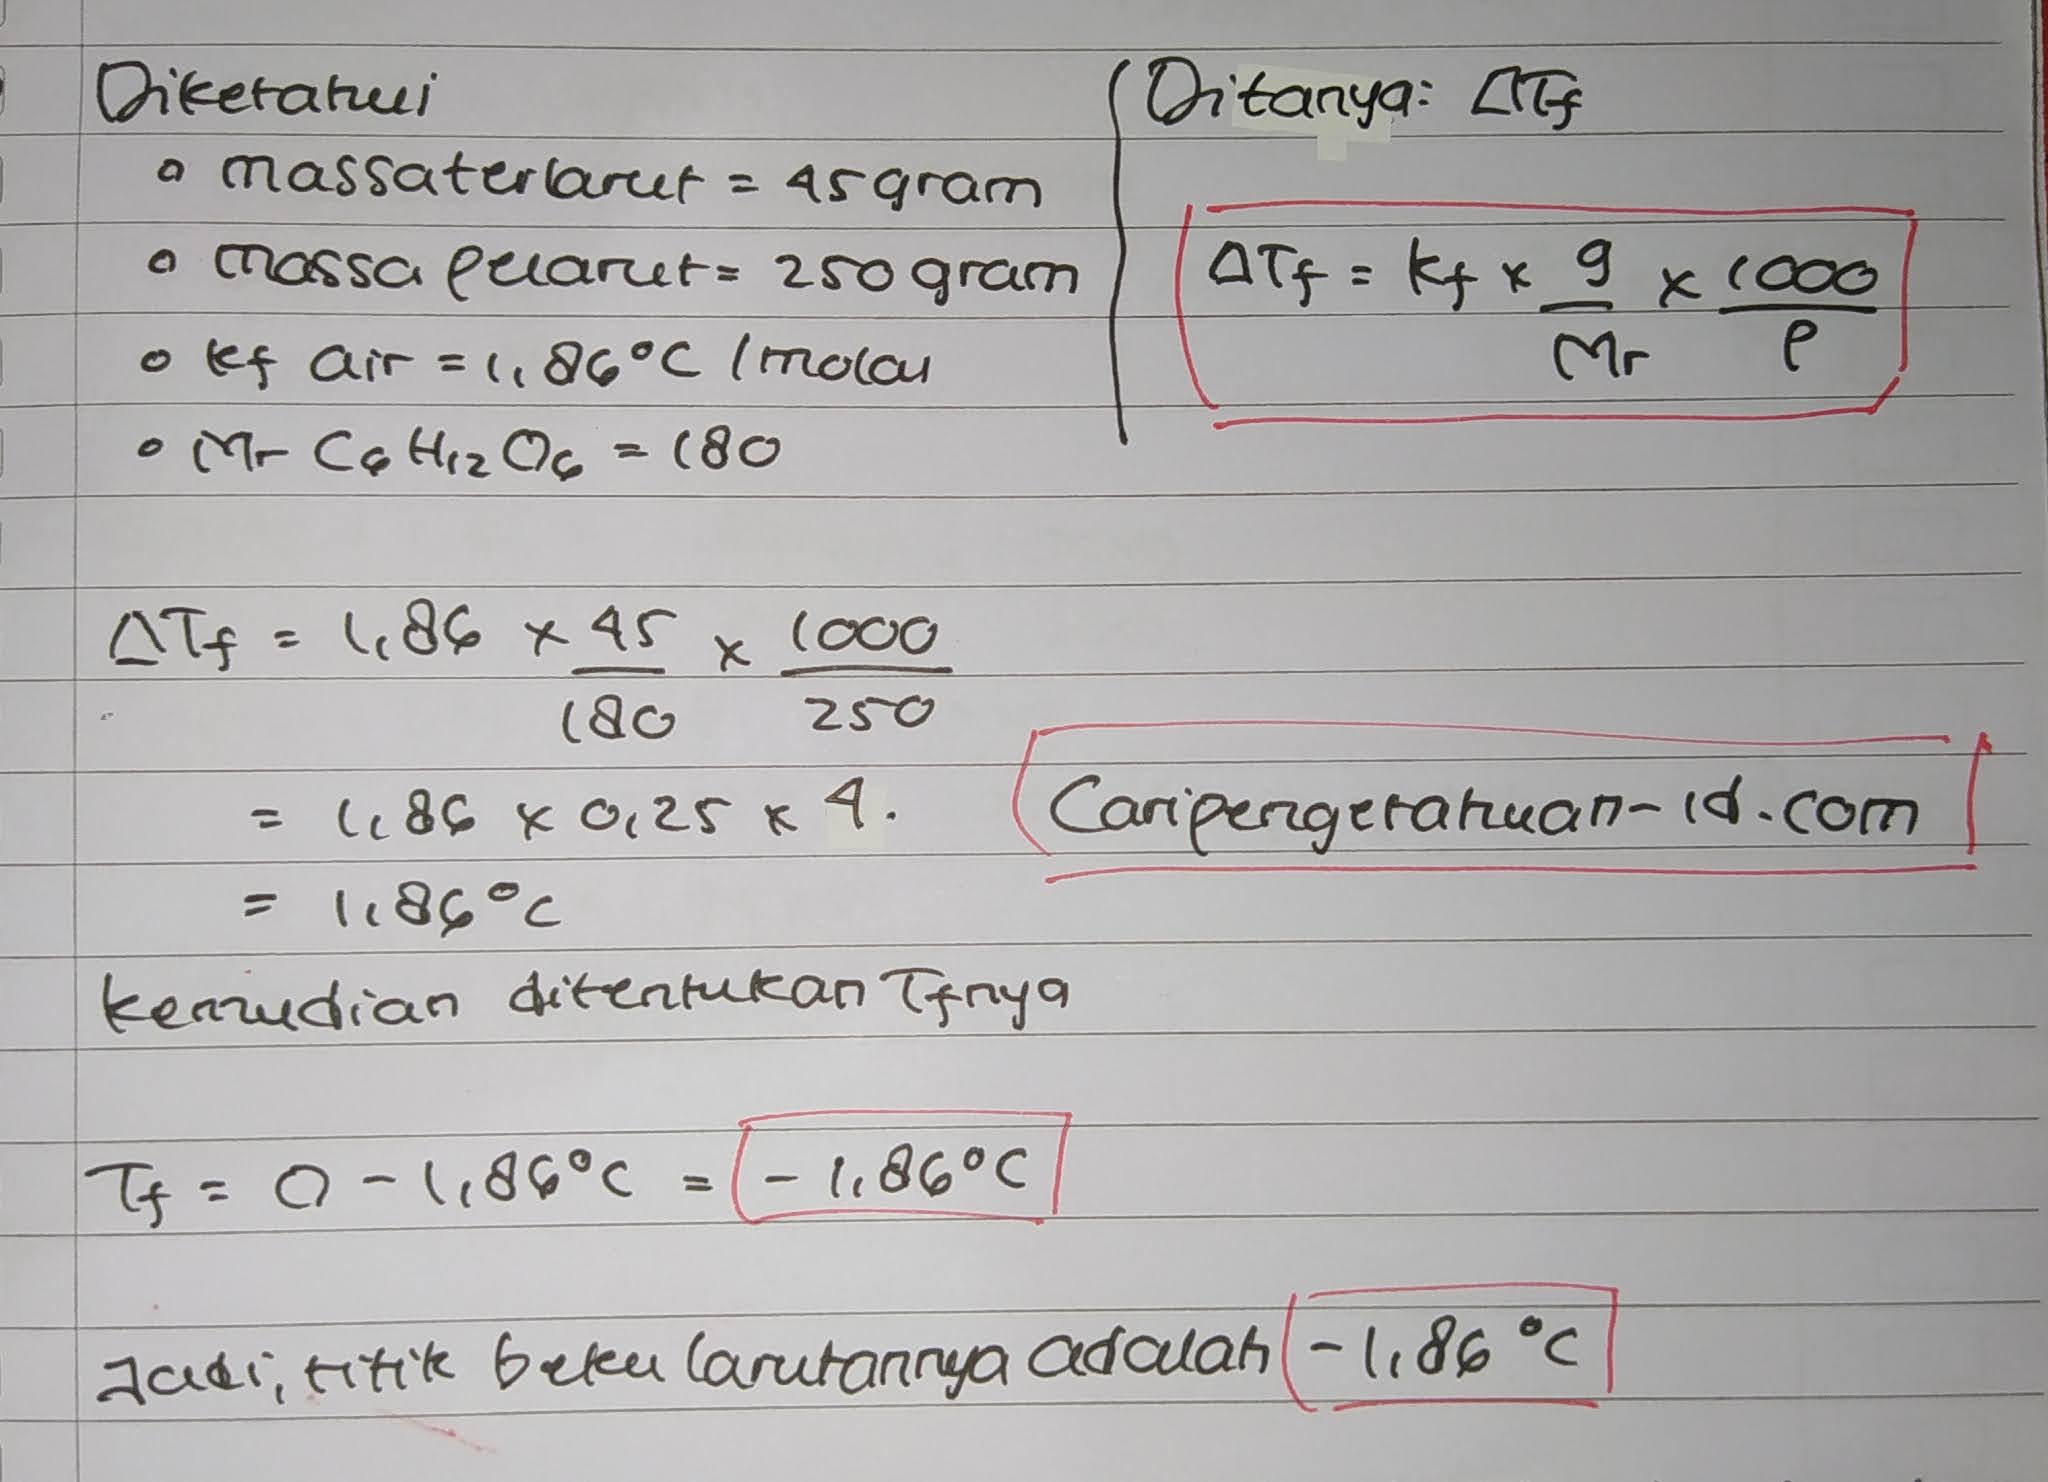 Diketahui
massa terlarut = 45 gram
massa pelarut = 250 gram
Kf air = 1,86°C / molal
Mr C6H12O6 = 180
Ditanya: ΔTf
ΔTf = Kf x g/Mr x 1000/P
ΔTf = 1,86 x 45/180 x 1000/250
= 1,86 x 0,25 x 4.
= 1,86°C
Caripengetahuan-id.com
kemudian ditentukan Tfnya
Tf = 0 - 1,86°C = -1,86°C
Jadi, titik beku larutannya adalah -1,86 °C